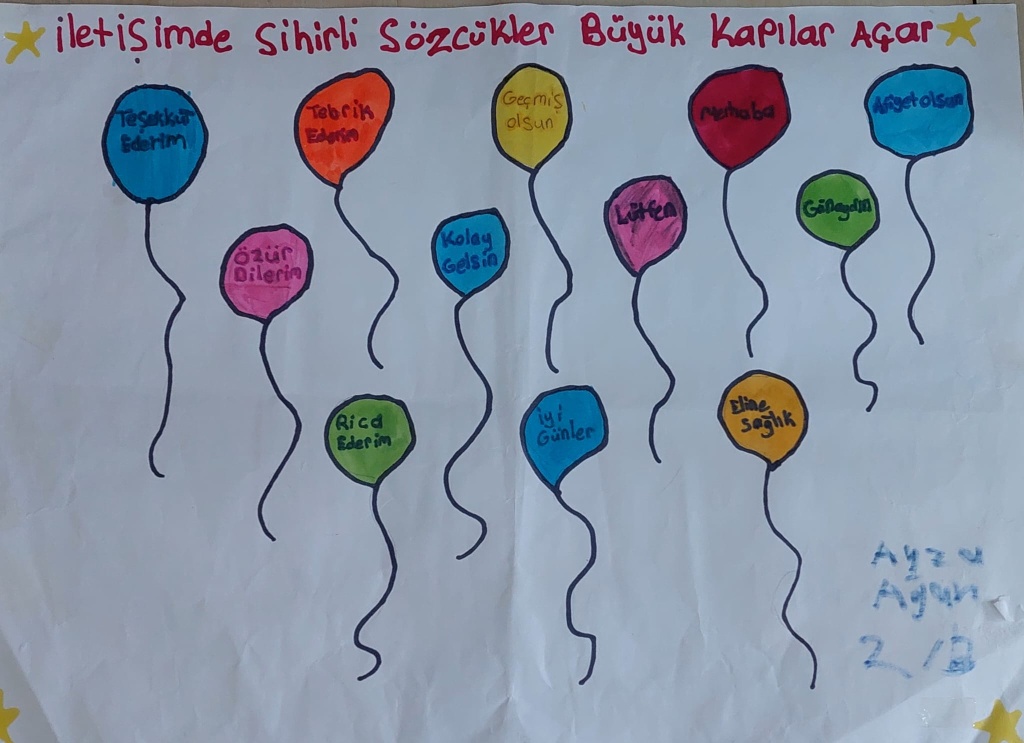 iletişimde Sihirli Sözcükler Büyük Kapılar Açar
Teşekkür
Ederim
Tebrik
Ederim
Geçmiş
olsun
Merhaba
Afiyet olsun
Özür
Dilerim
Kolay
Gelsin
Lütfen
Günaydın
Rica
Ederim
iyi
Günler
Eline
Sağlık
Ayzu
Agun
2/B